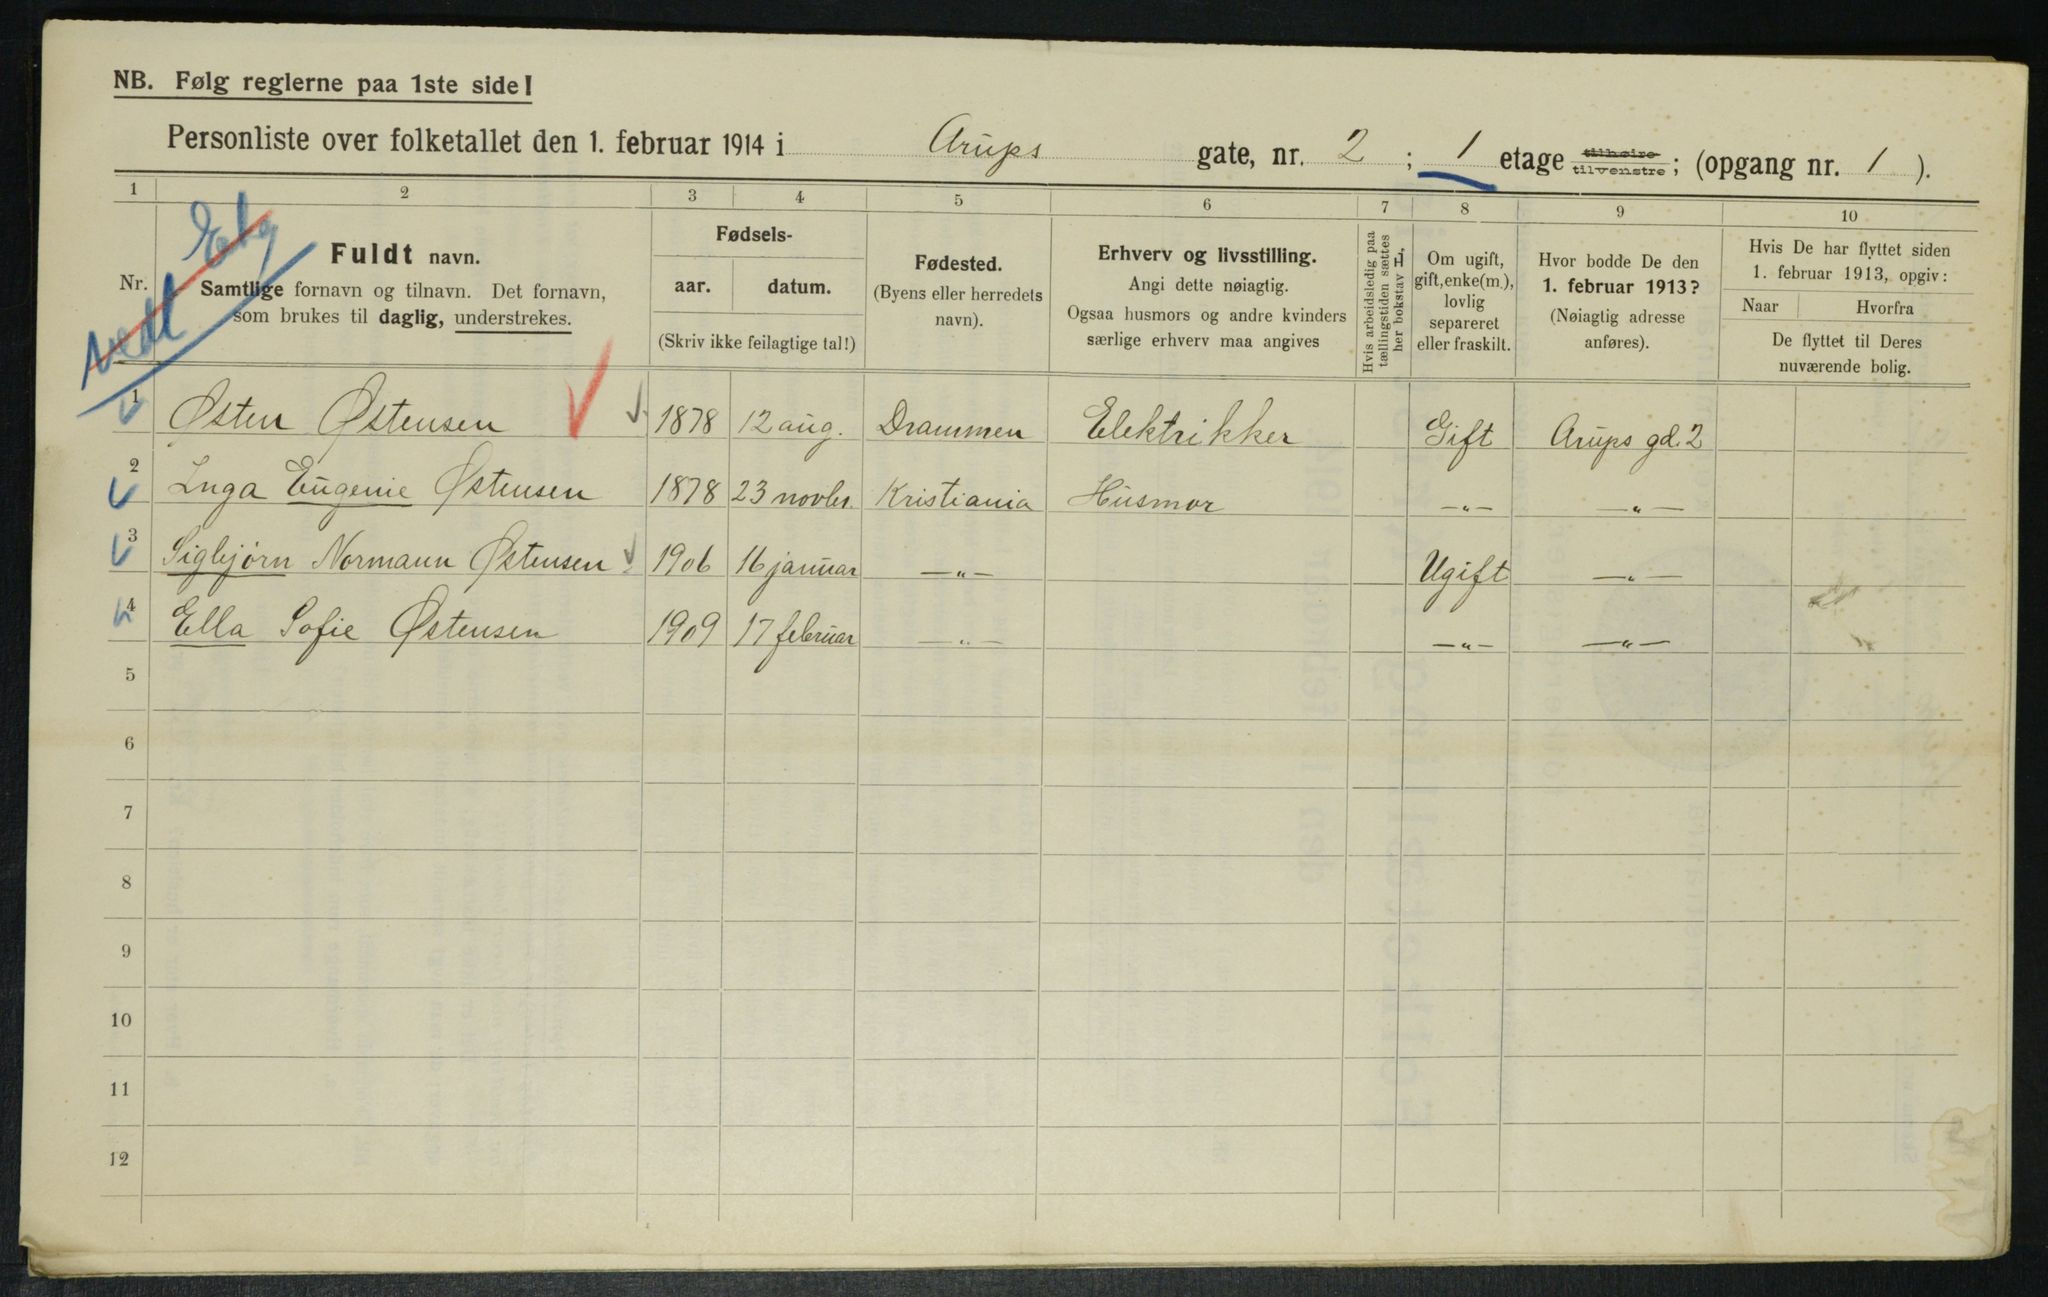 NB. Følg reglerne paa 1ste side!
Personliste over folketallet den 1. februar 1914 i Arups gate, nr. 2 ; 1 etage tilhøire tilvenstre ; (opgang nr. 1 ).
1 2 3 4 5 6 7 8 9 10
Nr.
Fuldt navn.
Samtlige fornavn og tilnavn. Det fornavn,
som brukes til daglig, understrekes.
Fødsels-
aar. datum.
(Skriv ikke feilagtige tal!)
Fødested.
(Byens eller herredets
navn).
Erhverv og livsstilling.
Angi dette nøiagtig.
Ogsaa husmors og andre kvinders
særlige erhverv maa angives
Hvis arbeidsledig paa
tællingstiden sættes
her bokstav L,
Om ugift,
gift, enke(m.),
lovlig
separeret
eller fraskilt.
Hvor bodde De den
1. februar 1913?
(Nøiagtig adresse
anføres).
Hvis De har flyttet siden
1. februar 1913, opgiv:
Naar Hvorfra
De flyttet til Deres
nuværende bolig.
1 Østen Østensen 1878 12 aug. Drammen Elektrikker Gift Arups gd. 2
2 Inga Eugenie Østensen 1878 23 novbr. Kristiania Husmor —„— —„—
3 Sigbjørn Normann Østensen 1906 16 januar —„— Ugift —„—
4 Ella Sofie Østensen 1909 17 februar —„— —„— —„—
5
6
7
8
9
10
11
12